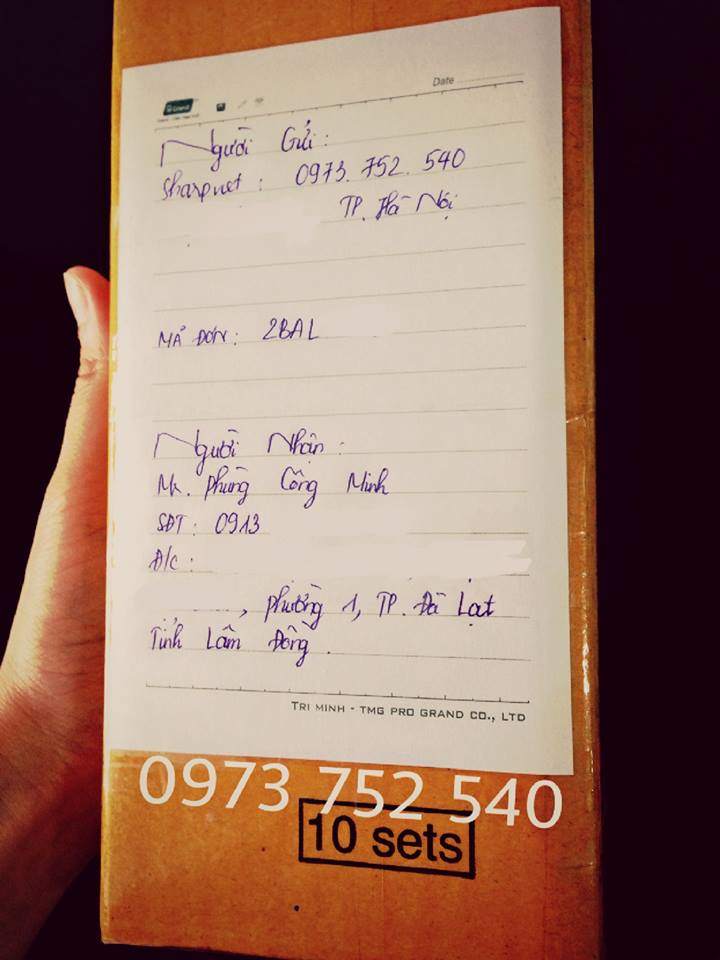 Date
Người Gửi:
Sharpnet: 0973.752.540
TP. Hà Nội
MÃ ĐƠN: 2BAL
Người Nhận:
Mr. Phùng Công Minh
SĐT: 0913
Đ/c:
, phường 1, TP. Đà Lạt
Tỉnh Lâm Đồng.
TRI MINH - TMG PRO GRAND CO., LTD
0973 752 540
10 sets